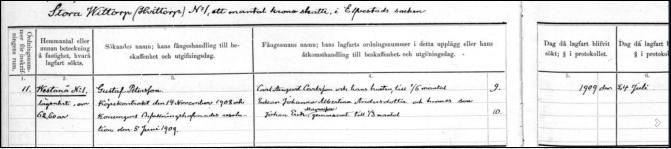 Stora Wittorp (Hvittorp) No 1, ett mantal krono skatte, i Elfvestads socken
Ordningsnummer för inskrifningens rum.
Hemmantal eller annan beteckning å fastighet, hvarå lagfart sökts.
Sökandes namn; hans fångeshandling till beskaffenhet och utgifningsdag.
Fångesmans namn; hans lagfarts ordningsnummer i detta upplägg eller hans åtkomsthandling till beskaffenhet och utgifningsdag.
Dag då lagfart blifvit sökt; § i protokollet.
Dag då lagfart
§ i
1. 2. 3. 4. 5. 6.
11. Westanå No 1, Gustaf Petersson Carl August Carlsson och hans hustru till 1/6 mantal 9. 1909 den 24 Juli
lägenhet, om Köpekontraktet den 14 November 1908 och Enkan Johanna Albertina Andersdotter och hennes son
62,60 ar Konungens Befallningshafvandes resolu- Johan Erik gemensamt till 1/3 mantal 10.
tion den 5 Juni 1909.